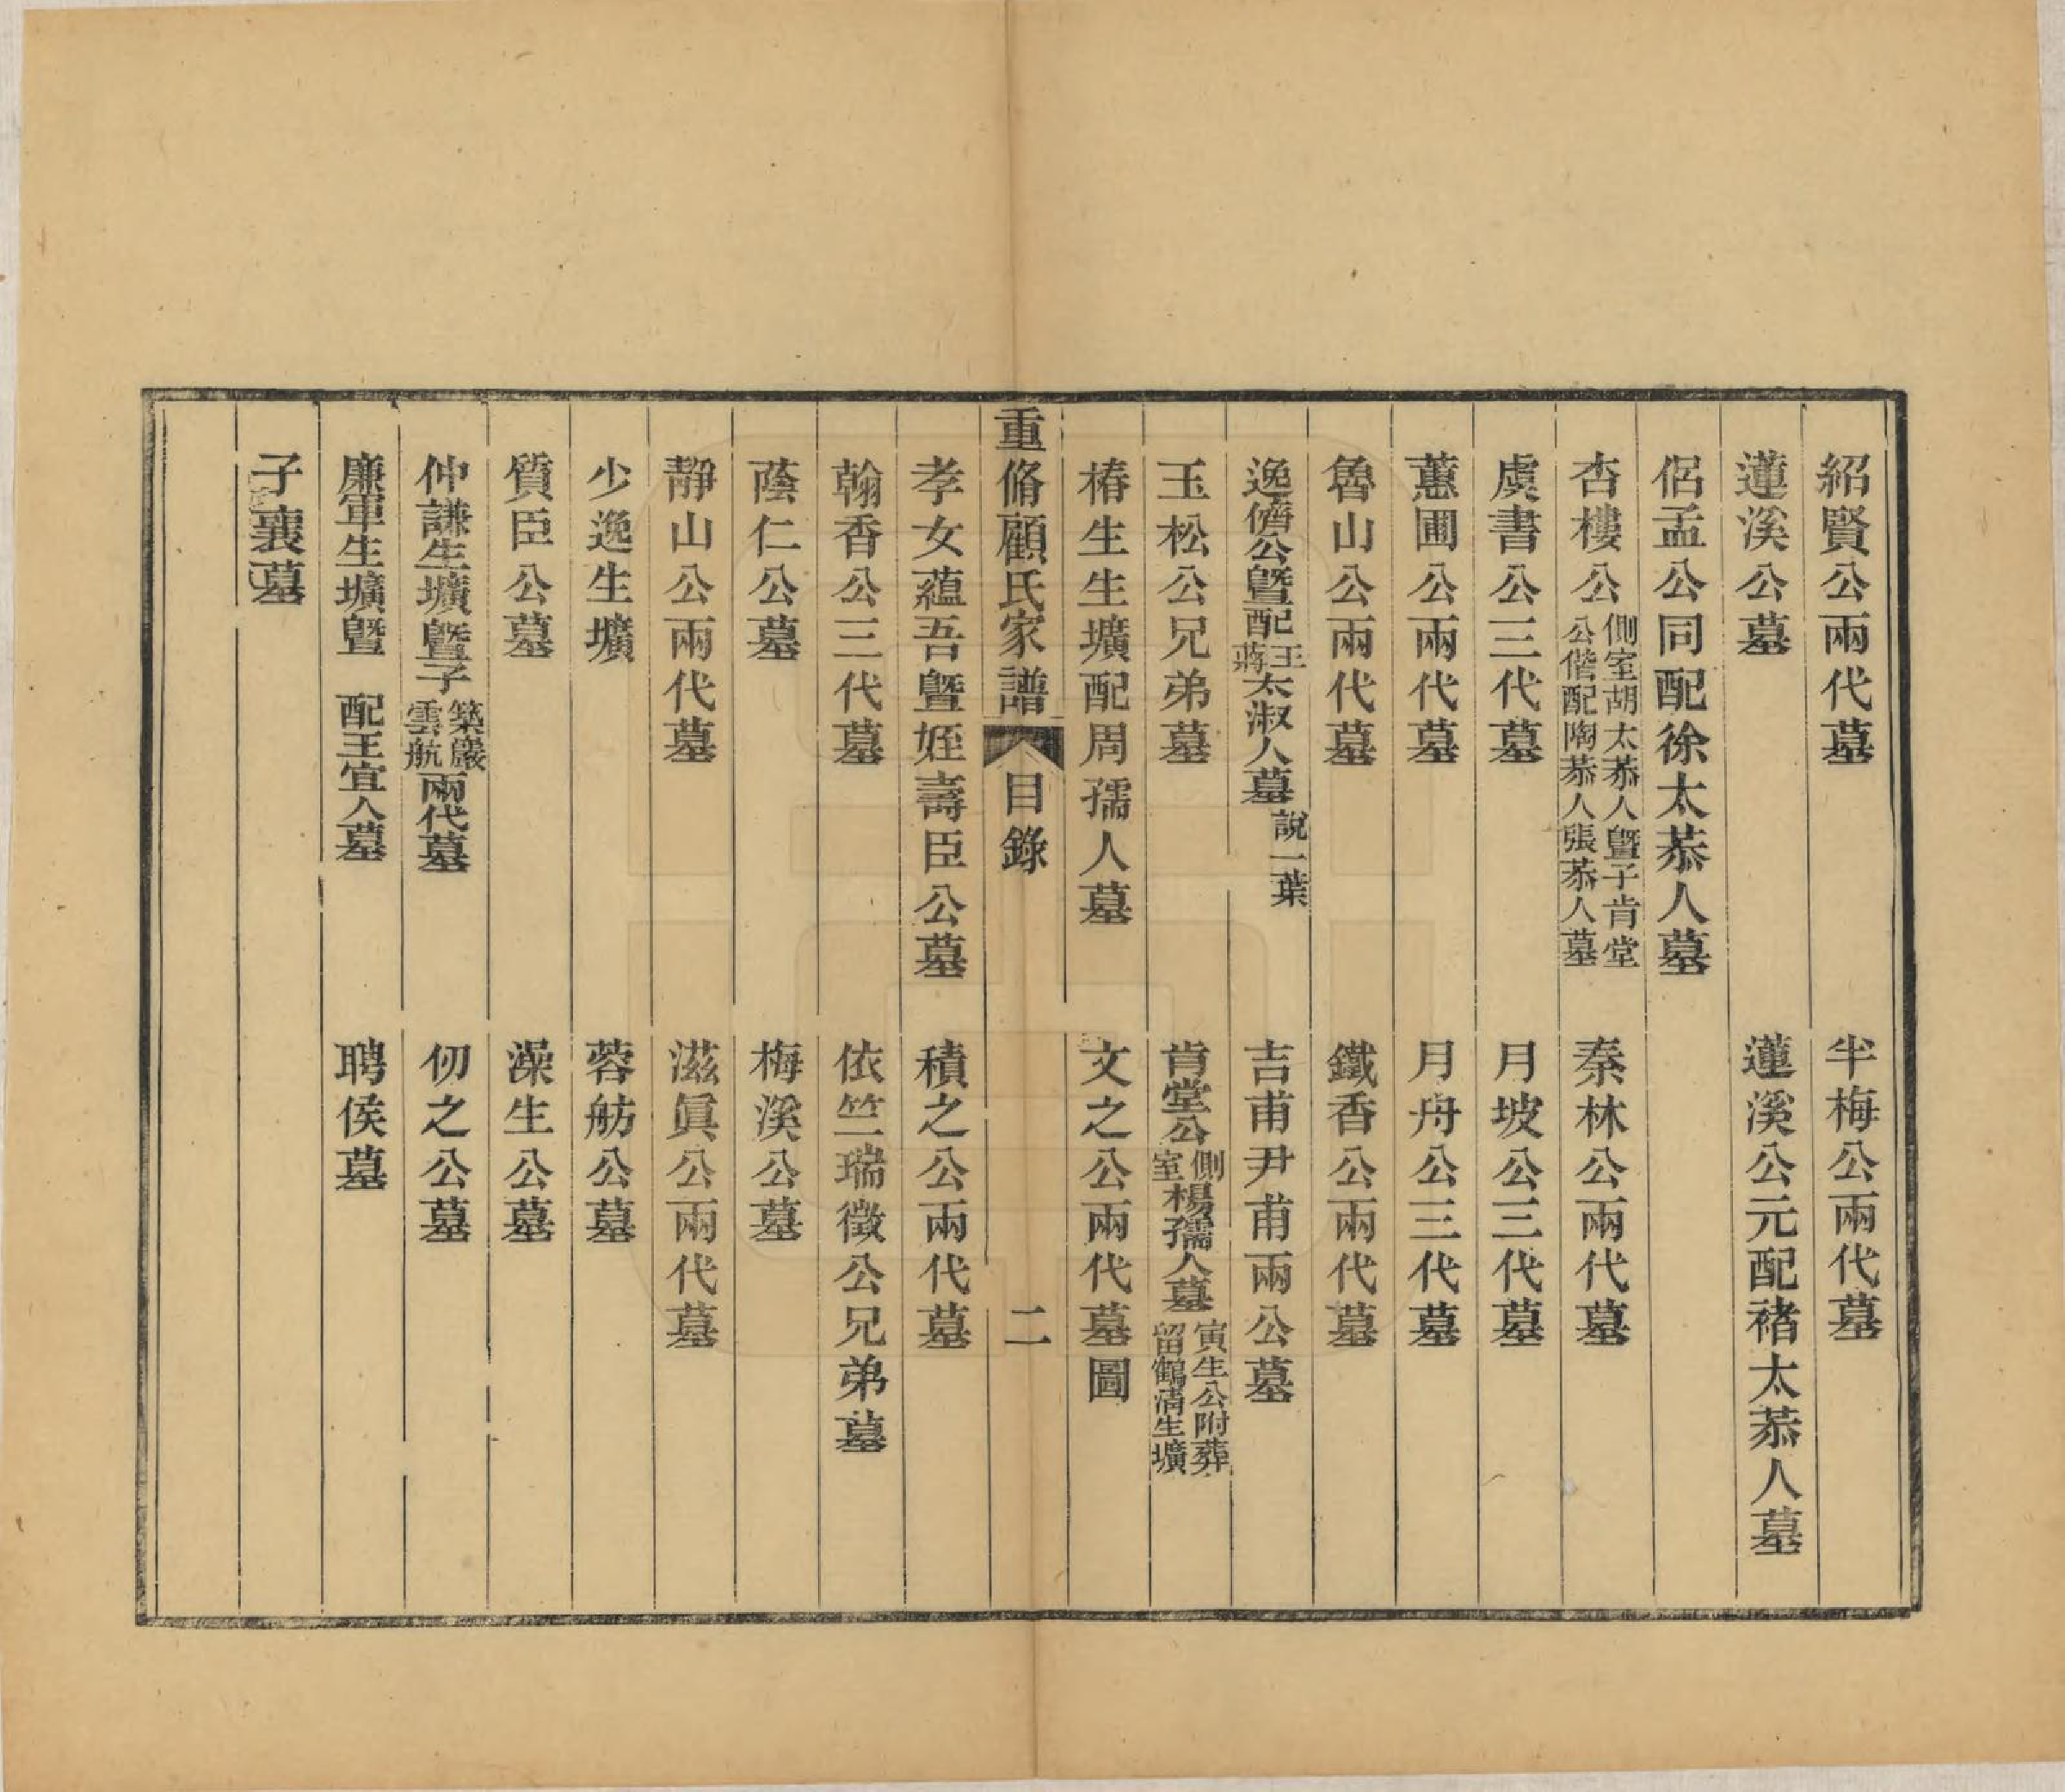 紹賢公兩代墓　半梅公兩代墓
蓮溪公墓　蓮溪公元配褚太恭人墓
侶孟公同配徐太恭人墓
杏樓公側室胡太恭人曁子肯堂公偕配陶恭人張恭人墓　秦林公兩代墓
虞書公三代墓　月坡公三代墓
蕙圃公兩代墓　月舟公三代墓
魯山公兩代墓　鐵香公兩代墓
逸儕公曁配王蔣太淑人墓說一葉　吉甫尹甫兩公墓
玉松公兄弟墓　肯堂公側室楊孺人墓寅生公附葬留鶴清生壙
椿生生壙配周孺人墓　文之公兩代墓圖
重脩顧氏家譜　目錄　二
孝女蘊吾曁姪壽臣公墓　積之公兩代墓
翰香公三代墓　依竺瑞徵公兄弟墓
蔭仁公墓　梅溪公墓
靜山公兩代墓　滋眞公兩代墓
少逸生壙　蓉舫公墓
質臣公墓　澡生公墓
仲謙生壙曁子築巖雲航兩代墓　仞之公墓
廉軍生壙曁　配王宜人墓　聘侯墓
子襄墓